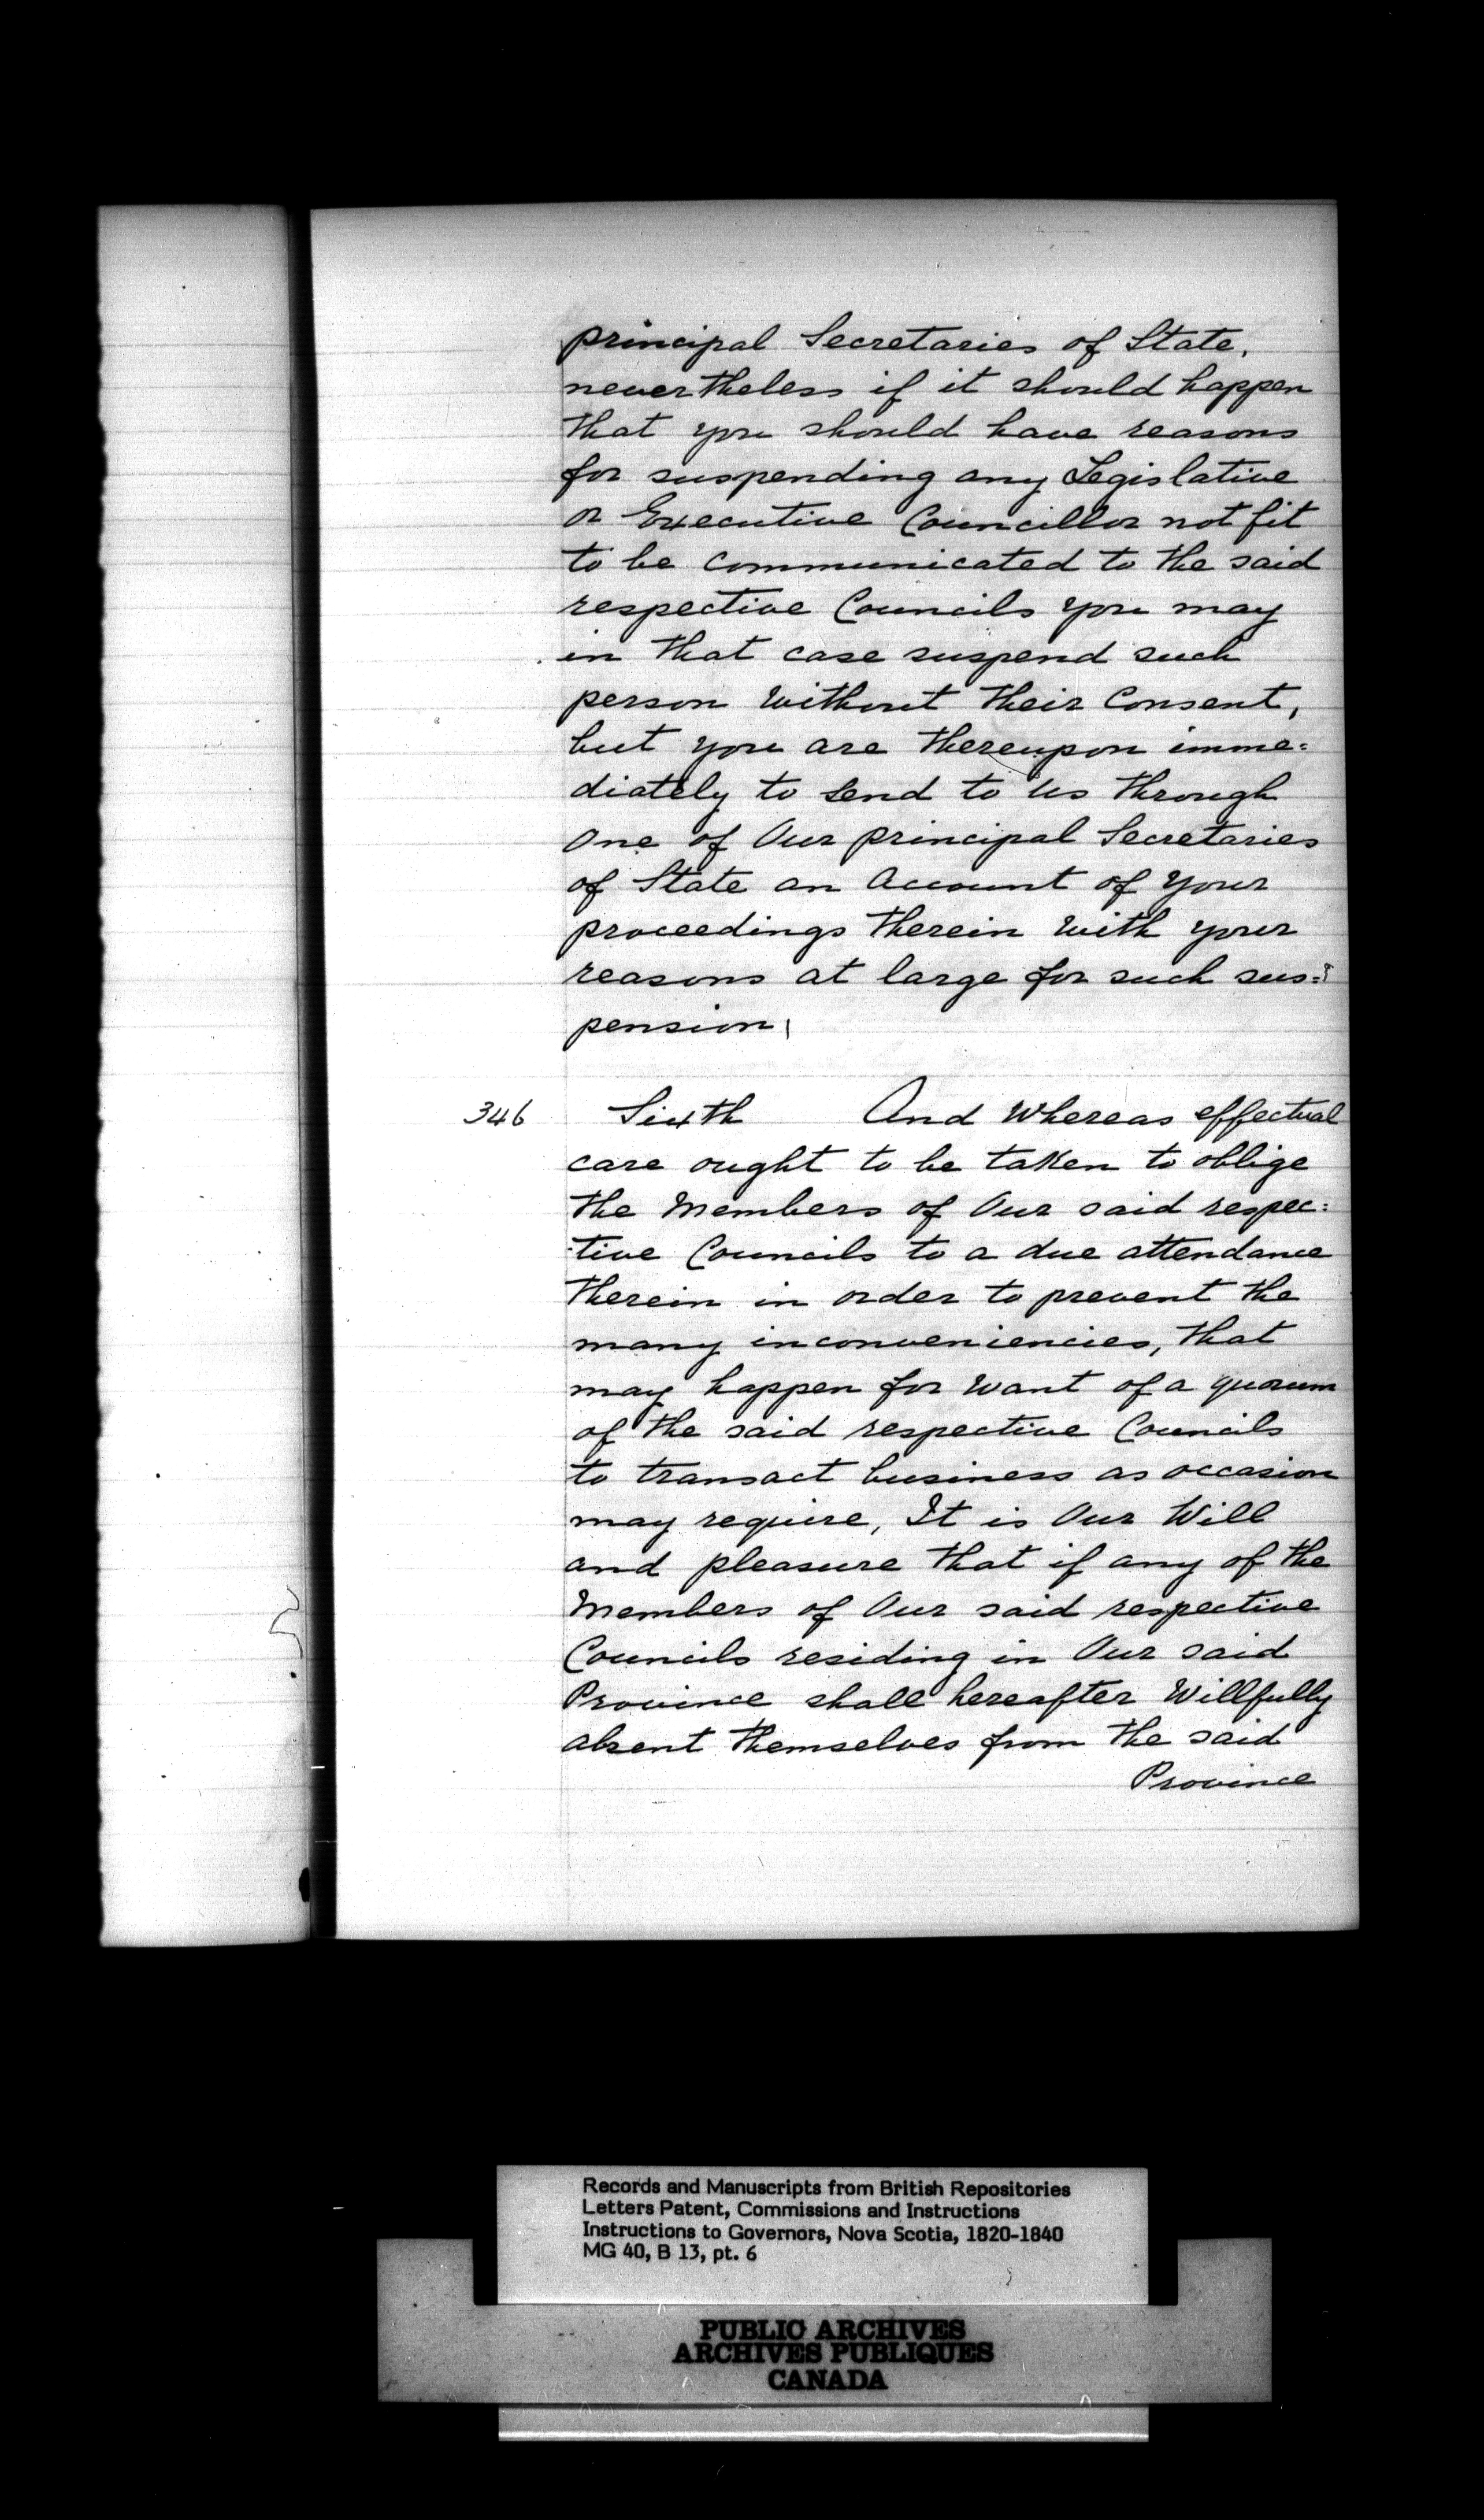 principal Secretaries of State,
nevertheless if it should happen
that you should have reasons
for suspending any Legislative
or Executive Councillor not fit
to be communicated to the said
respective Councils you may
in that case suspend such
person without their Consent,
but you are thereupon imme=
diately to send to Us through
One of Our principal Secretaries
of State an Account of your
proceedings therein with your
reasons at large for such sus=
pension,
346 Sixth And Whereas effectual
care ought to be taken to oblige
the Members of Our said respec=
tive Councils to a due attendance
therein in order to prevent the
many inconveniencies, that
may happen for want of a quorum
of the said respective Councils
to transact business as occasion
may require, It is Our Will
and pleasure that if any of the
Members of Our said respective
Councils residing in Our said
Province shall hereafter Willfully
absent themselves from the said
Province
Records and Manuscripts from British Repositories
Letters Patent, Commissions and Instructions
Instructions to Governors, Nova Scotia, 1820-1840
MG 40, B 13, pt. 6
PUBLIC ARCHIVES
ARCHIVES PUBLIQUES
CANADA